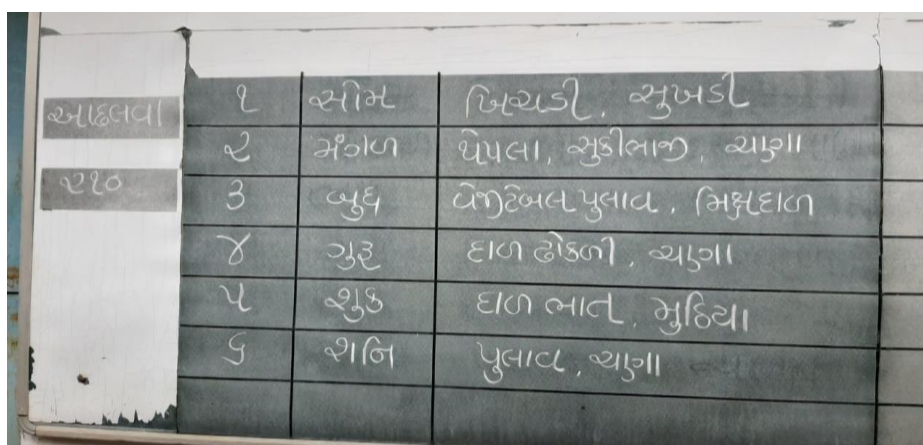 આદલવા
૨૧૦
૧ સોમ ખિચડી, સુખડી
૨ મંગળ થેપલા, સુકીભાજી, ચણા
૩ બુધ વેજીટેબલ પુલાવ, મિક્ષદાળ
૪ ગુરૂ દાળ ઢોકળી, ચણા
૫ શુક્ર દાળ ભાત, મુઠિયા
૬ શનિ પુલાવ, ચણા